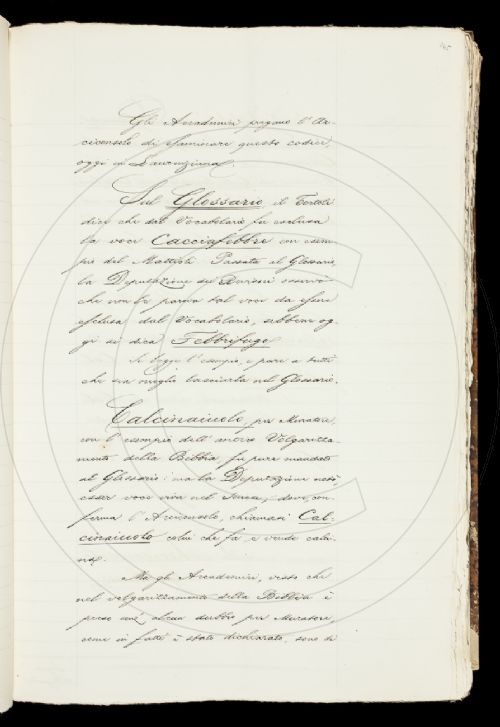 Gli Accademici pregano l'Ar-
ciconsolo di esaminare questo codice,
oggi in Laurenziana.
Sul Glossario il Tortoli
dice che dal Vocabolario fu esclusa
la voce Cacciafebbre con esem-
pio del Mattioli. Passata al Glossario,
la Deputazione dei Revisori osservò
che non le pareva tal voce da essere
esclusa dal Vocabolario, sebbene og-
gi si dica Febbrifugo.
Si legge l'esempio, e pare a tutti
che sia meglio lasciarla nel Glossario.
Calcinaiuolo per Muratore,
con l'esempio dell'antico Volgarizza-
mento della Bibbia, fu pure mandato
al Glossario: ma la Deputazione notò
esser voce viva nel Senese, dove, con-
ferma l'Arciconsolo, chiamasi Cal-
cinaiuolo colui che fa, e vende calci-
na.
Ma gli Accademici, visto che
nel volgarizzamento della Bibbia è
preso senz'alcun dubbio per Muratore,
come in fatti è stato dichiarato, sono di